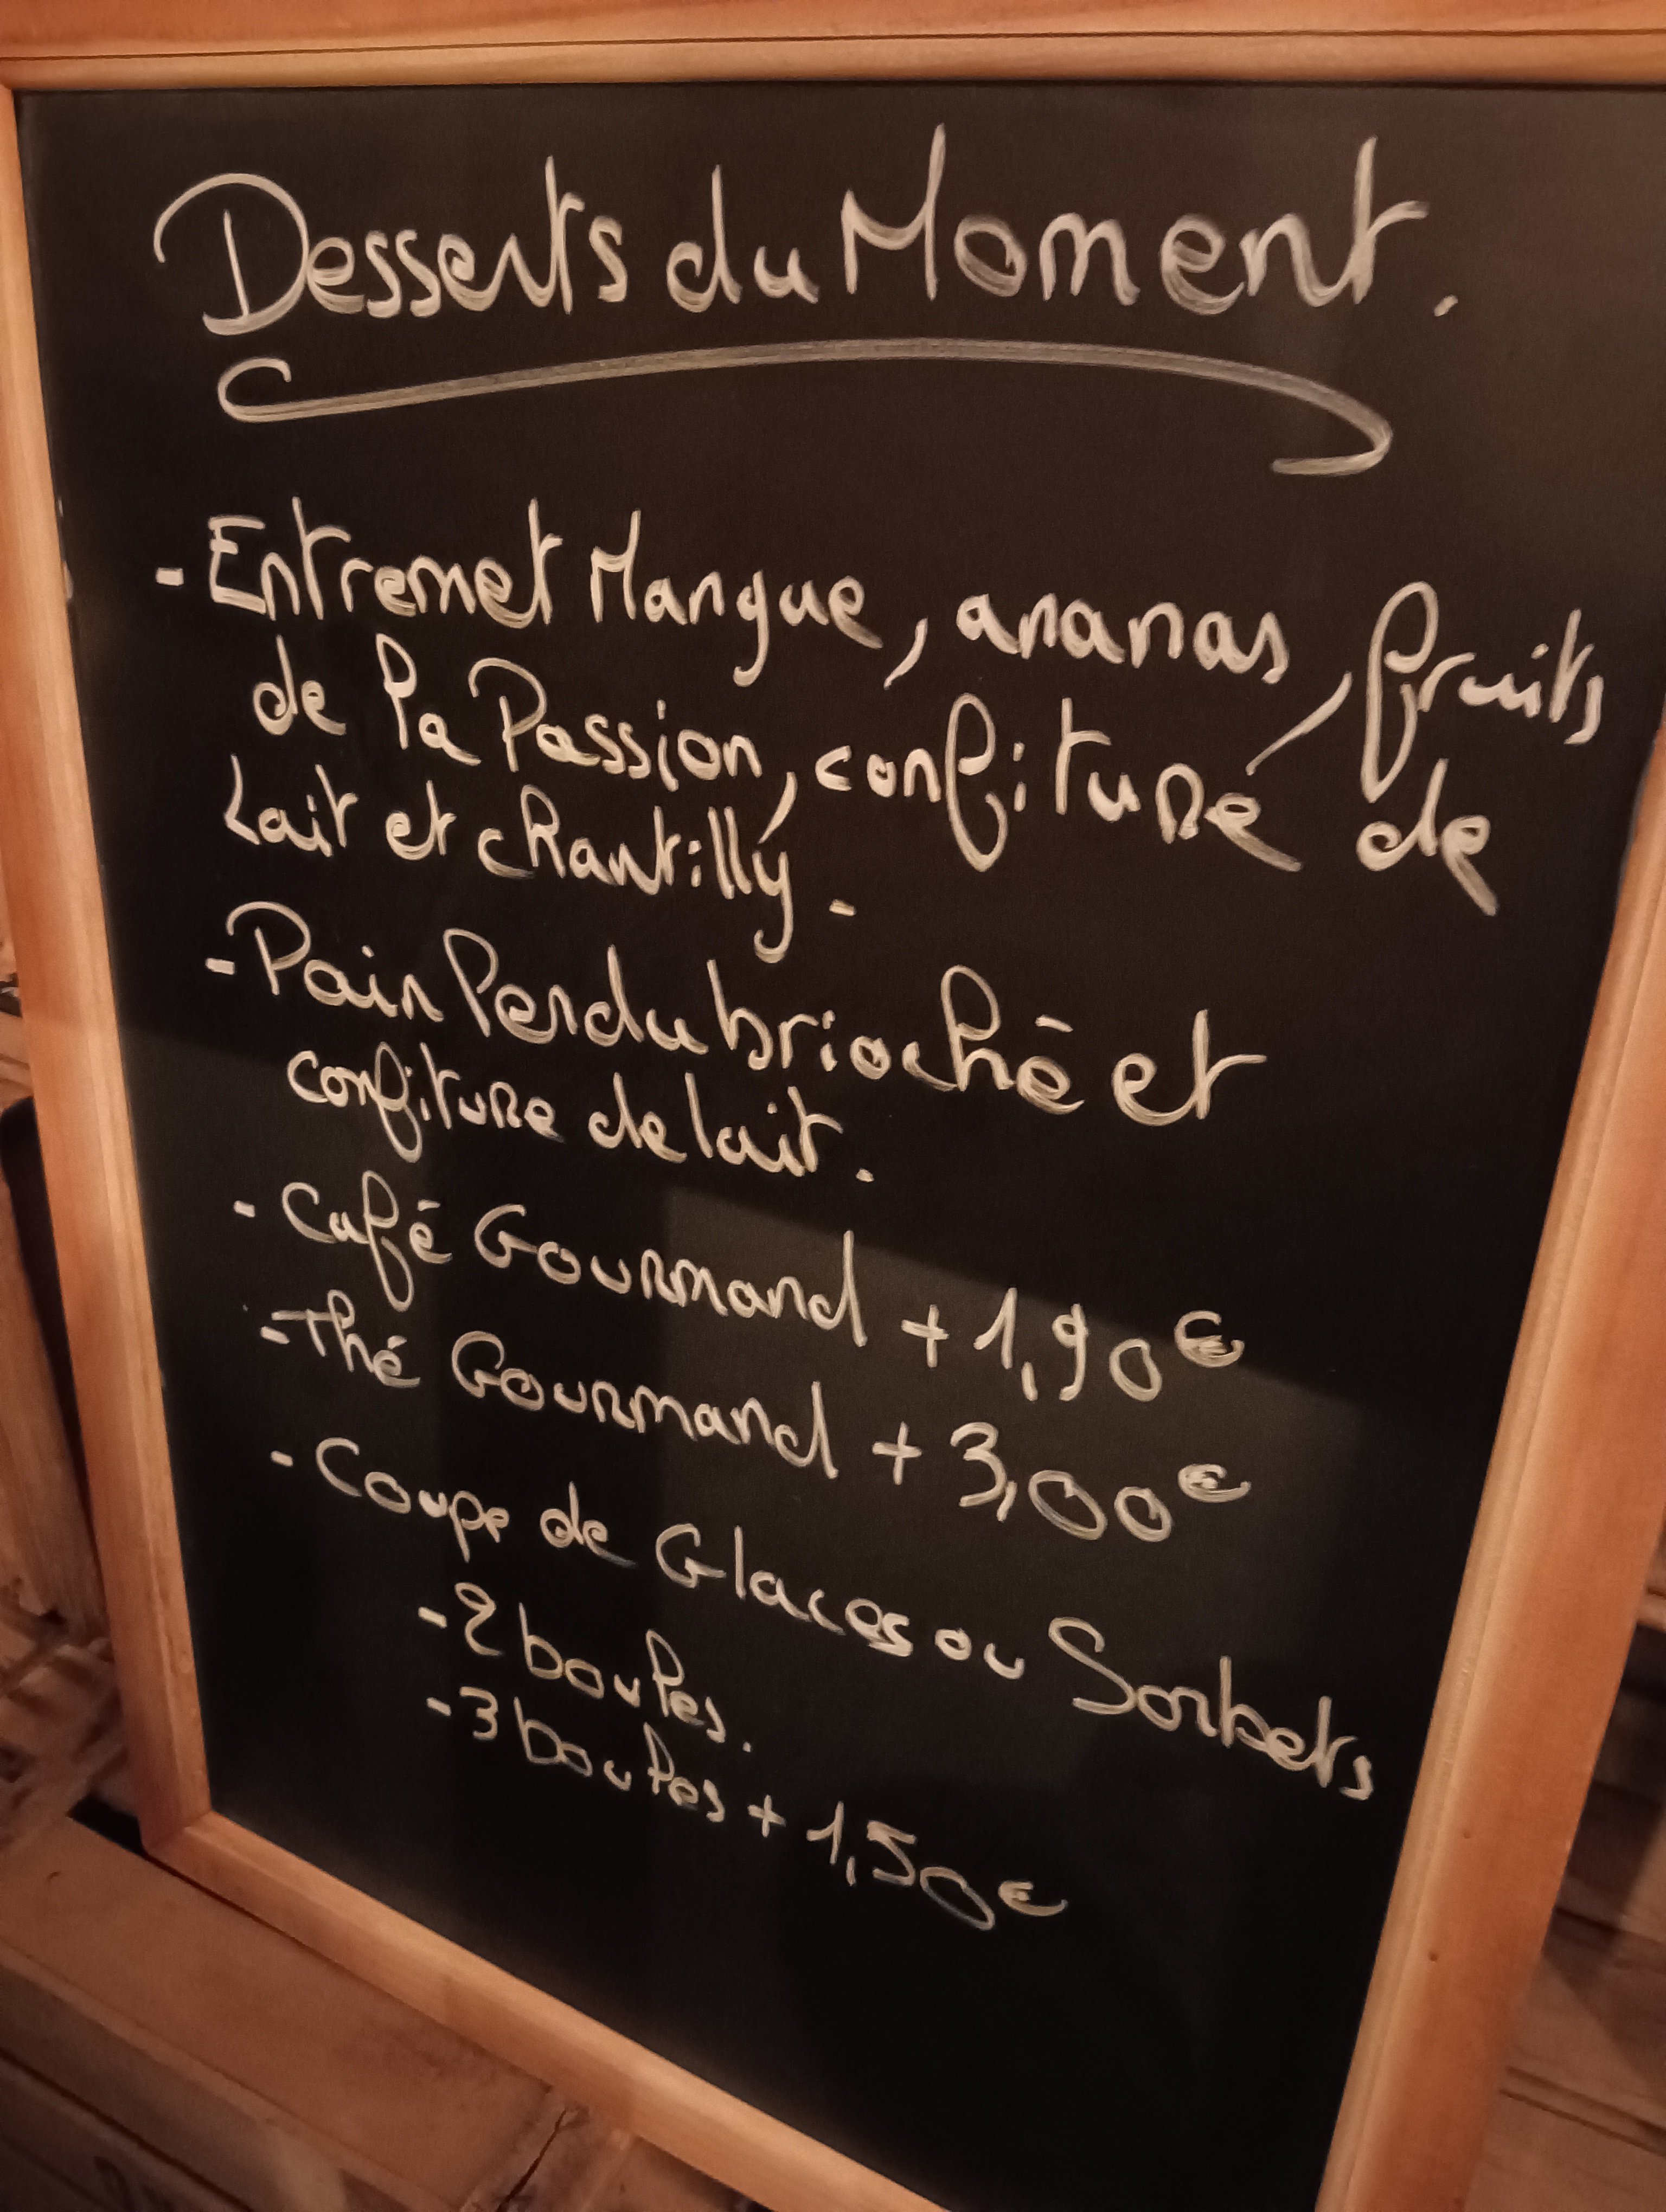 Desserts du Moment.
- Entremet Mangue, ananas, fruits
de la Passion, confiture de
Lait et chantilly.
- Pain Perdu brioché et
confiture de lait.
- Café Gourmand + 1,90€
- Thé Gourmand + 3,00€
- Coupe de Glaces ou Sorbets
- 2 boules.
- 3 boules + 1,50€